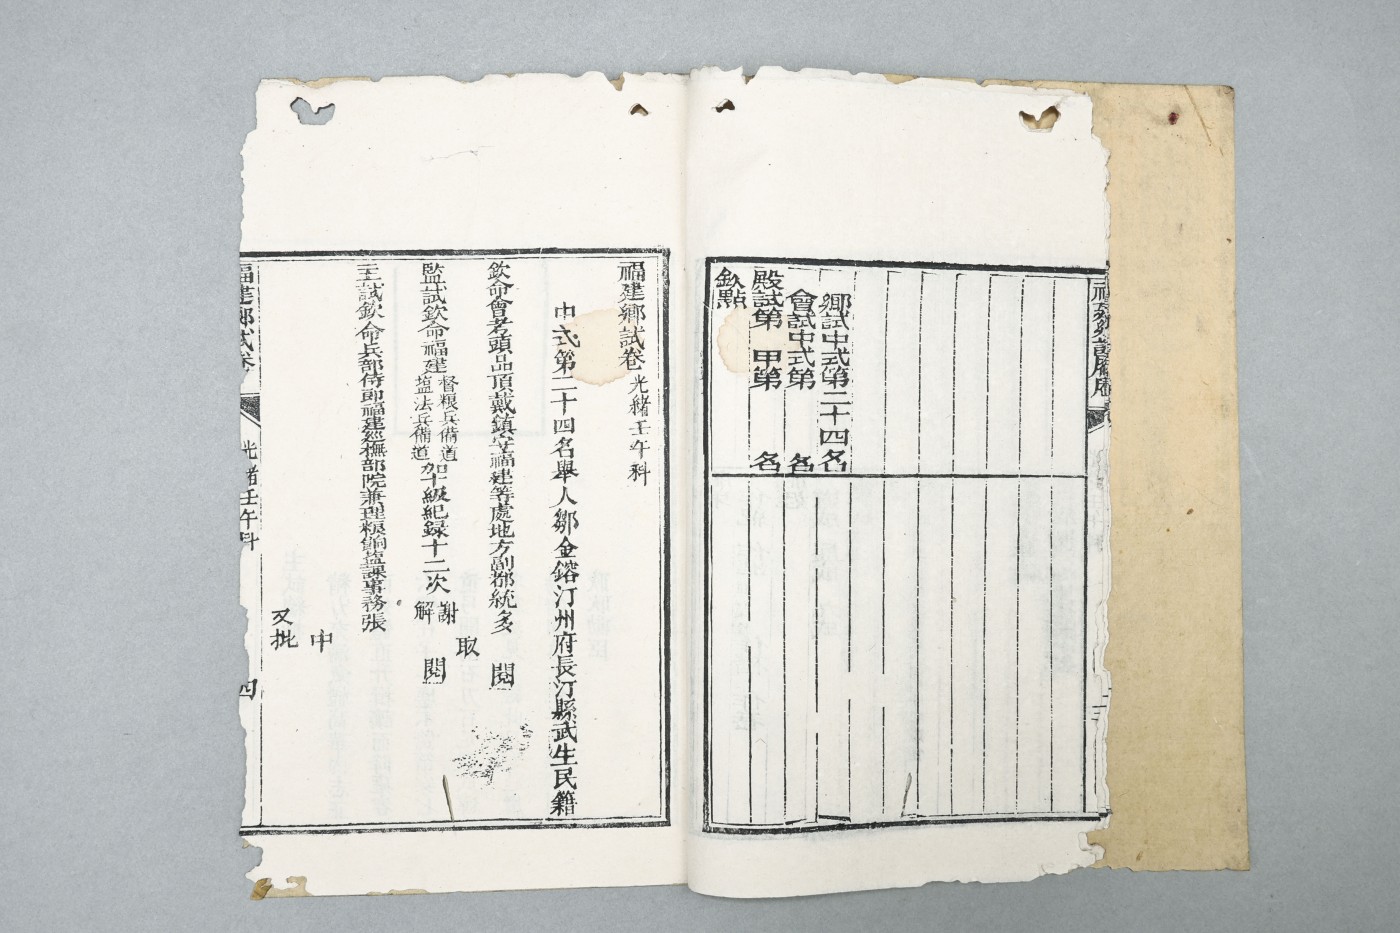 鄉試中式第二十四名
會試中式第　名
殿試第　甲第　名
欽點
福建鄉試卷　光緒壬午科
中式第二十四名舉人鄒金鎔汀州府長汀縣武生民籍
欽命會考頭品頂戴鎮守福建等處地方副都統多　閱
取
監試欽命福建督粮兵備道鹽法兵備道加十級紀録十二次謝解　閱
主試欽命兵部侍郎福建巡撫部院兼理粮餉鹽課事務張
中
又批
福建鄉試卷
光緒壬午科
四